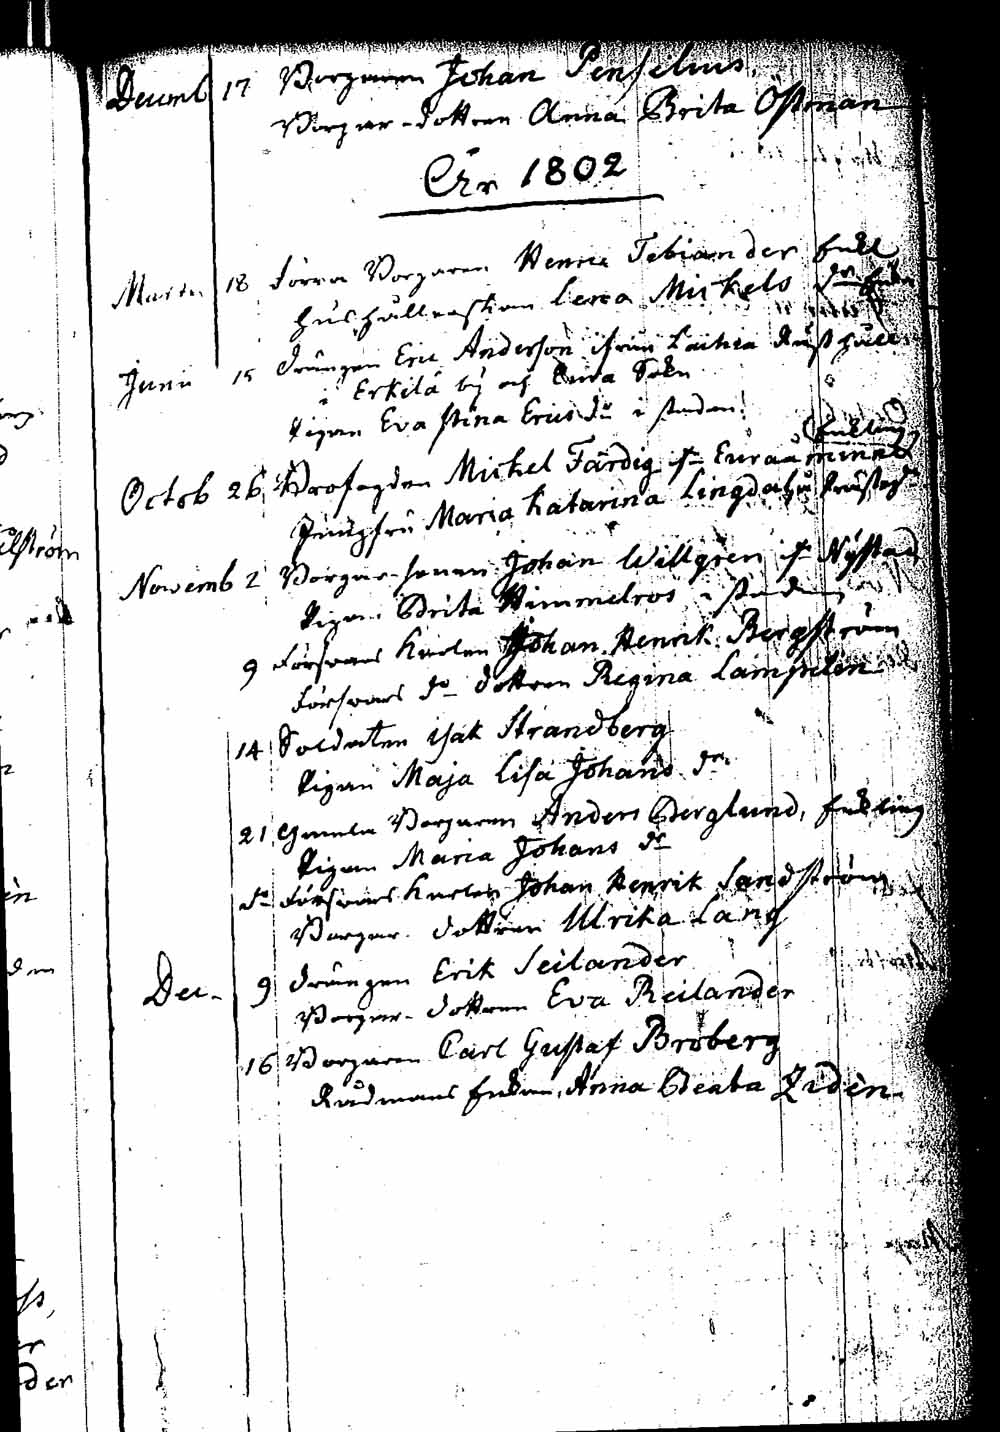 Decemb 17 Borgaren Johan Penselius.
Borgar-dottren Anna Brita Östman
År 1802
Martii 18 Förra Borgaren Henric Tebiander Enkl
Hushållerskan Lena Mickels dr
Junii 15 Drängen Eric Anderson ifrån Laihia Rusthåll
i Erkilä by och Eura Sokn
Pigan Eva Stina Ericsdr i staden.
Enkling
Octob 26 Profogden Mickel Färdig fr Euraåminne
Jungfru Maria Katarina Lingdahl
Novemb 2 Borgare-sonen Johan Willgren fr Nystad
Pigan Brita Himmelros i staden
9 Försvars Karlen Johan Henrik Bergström
Försvars do dottren Regina Lampelen
14 Soldaten Isak Strandberg
Pigan Maja Lisa Johans dr
21 Gamla Borgaren Anders Berglund, Enkling
Pigan Maria Johans dr
do Försvars Karlen Johan Henrik Sandström
Borgar-dottren Ulrika Lang
Dec- 9 Drängen Erik Seilander
Borgar-dottren Eva Reilander
16 Borgaren Carl Gustaf Broberg
Rådmans Enkan, Anna Beata Zidèn.
ulström
èn
den
der